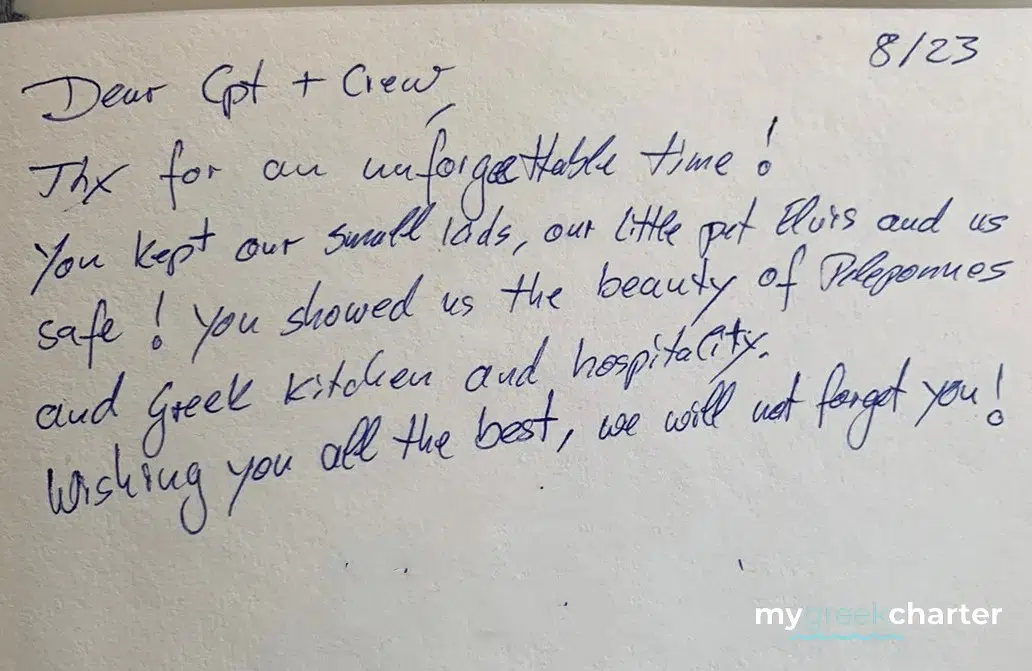 8/23
Dear Cpt + Crew
Thx for an unforgettable time!
You kept our small lads, our little pet Elvis and us
safe! You showed us the beauty of Peleponnes
and Greek kitchen and hospitality.
Wishing you all the best, we will not forget you!
mygreekcharter